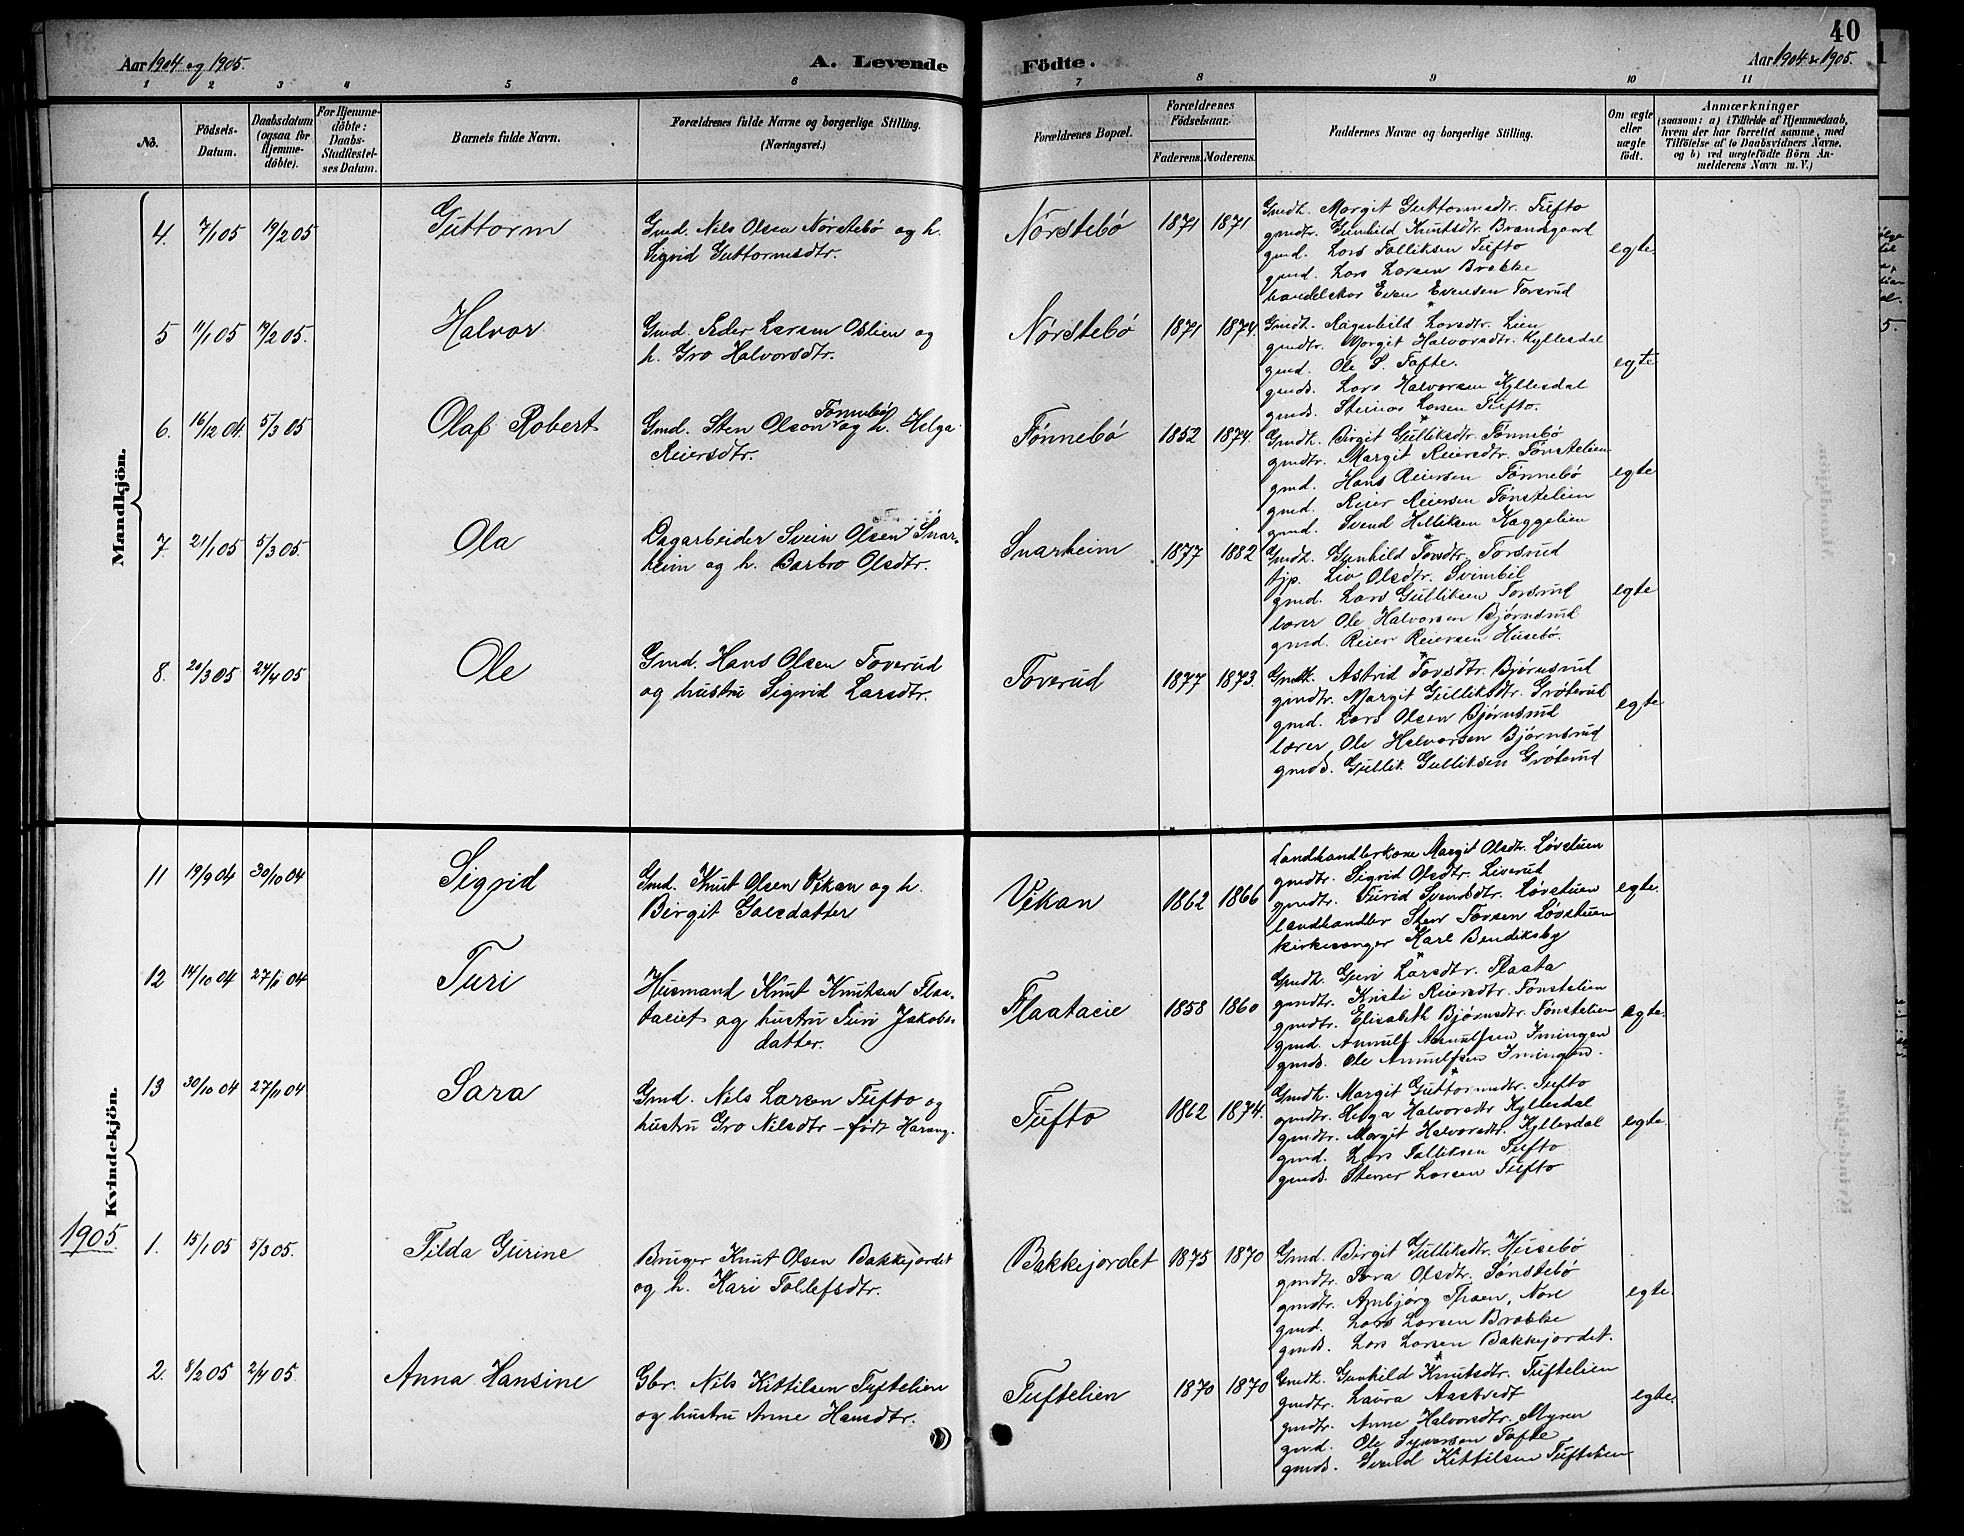 40
Aar 1904 og 1905.
A. Levende
Födte.
Aar 1904 & 1905.
1 2 3 4 5 6 7 8 9 10 11
No.
Födsels-Datum.
Daabsdatum (ogsaa for Hjemme-döbte).
For Hjemme-döbte: Daabs-Stadfæstel-ses Datum.
Barnets fulde Navn.
Forældrenes fulde Navne og borgerlige Stilling. (Næringsvei.)
Forældrenes Bopæl.
Forældrenes Födselsaar.
Faderens. Moderens.
Faddernes Navne og borgerlige Stilling.
Om ægte eller uægte födt.
Anmærkninger
(saasom: a) i Tilfælde af Hjemmedaab, hvem der har forrettet samme, med Tilföielse af to Daabsvidners Navne, og b) ved uægtefödte Börn Anmelderens Navn m. V.)
Mandkjön.
4. 7/1 05 19/2 05 Guttorm
Gmd. Nils Olsen Nørstebø og h.
Sigrid Guttormsdtr.
Nørstebø 1871 1871
Gmdh. Margit Guttormsdtr. Tufto
gmdtr. Gunhild Knutsdtr. Brandsgaard
gmd. Lars Tolliksen Tufto
gmd. Lars Larsen Brække
handelskar Even Evensen Torsrud
egte.
5 11/1 05 19/2 05. Halvor
Gmd. Peder Larsen Oslien og
h. Gro Halvorsdtr.
Nørstebø 1871 1874.
Gmdh. Ragnhild Larsdtr. Lien
gmdtr. Margit Halvorsdtr. Kyllesdal
gmd. Ole S. Tofte.
gmds. Lars Halvorsen Kyllesdal
gmds. Steinar Larsen Tufto.
egte
6. 16/12 04. 5/3 05 Olaf Robert
Gmd. Sten Olson Tønnebø og h. Helga
Reiersdtr.
Tønnebø 1852 1874.
Gmdh. Birgit Gulliksdtr. Tønnebø
gmdtr. Margit Reiersdtr. Tønstelien
gmd. Hans Reiersen Tønnebø
gmd. Reier Reiersen Tønstelien
gmd. Svend Helliksen Kaggelien
egte
7 21/1 05 5/3 05. Ola
Dagarbeider Svein Olsen Snar-
heim og h. Barbro Olsdtr.
Snarheim 1877 1882
Gmdh. Gunhild Tovsdtr. Torsrud
tjp. Liv Olsdtr. Svimbil
gmd. Lars Gulliksen Torsrud
lærer Ole Halvorsen Bjørnsrud
gmd. Reier Reiersen Husebø.
egte
8. 20/3 05 24/4 05 Ole
Gmd. Hans Olsen Toverud
og hustru Sigrid Larsdtr.
Toverud 1877 1873.
Gmdh. Astrid Tovsdtr. Bjørnsrud
gmdtr. Margit Gulliksdtr. Grøterud
gmd. Lars Olsen Bjørnsrud
lærer Ole Halvorsen Bjørnsrud
gmds. Gullik Gulliksen Grøterud
egte
Kvindekjön.
11 19/9 04 30/10 04 Sigrid
Gmd. Knut Olsen Vikan og h.
Birgit Goesdatter
Vikan 1862 1866
Landhandlerkone Margit Olsdtr. Løvstuen
gmdtr. Sigrid Olsdtr. Liverud
gmdtr. Turid Svendsdtr. Løvstuen
landhandler Sten Tovsen Løvstuen
kirkesanger Karl Bendiksby
egte.
12 14/10 04 27/11 04 Turi
Husmand Knut Knutsen Flaa-
taeiet og hustru Turi Jakobs-
datter.
Flaataeie 1858 1860
Gmdh. Guri Larsdtr. Flaata
gmdtr. Kristi Reiersdtr. Tønstelien
gmdtr. Elisabeth Bjørnsdtr. Tønstelien
gmd. Annulf Annulfsen Imingen
gmds. Ole Annulfsen Imingen.
egte.
13 30/10 04 27/11 04 Sara
Gmd. Nils Larsen Tufto og
hustru Gro Nilsdtr - født Harang.
Tufto 1862 1874.
Gmdh. Margit Guttormsdtr. Tufto
gmdtr. Helga Halvorsdtr Kyllesdal
gmdtr. Margit Halvorsdtr. Kyllesdal
gmd. Lars Tolliksen Tufto
gmds. Stener Larsen Tufto
egte.
1905.
1. 15/1 05 5/3 05. Tilda Gurine
Bruger Knut Olsen Bakkejordet
og h. Kari Tollefsdtr.
Bakkejordet 1875 1870
Gmd. Birgit Gulliksdtr. Husebø
gmdtr. Tora Olsdtr. Sønstebø
gmdtr. Ambjørg Thoen, Nore
gmd. Lars Larsen Brække
gmds. Lars Larsen Bakkejordet.
egte.
2. 8/2 05 2/4 05. Anna Hansine
Gbr. Nils Kittilsen Tuftelien
og hustru Anne Hansdtr.
Tuftelien 1870 1870
Gmdh. Gunhild Knutsdtr. Tuftelien
gmdtr. Laura Aastvedt
gmdtr. Anne Halvorsdtr. Myren
gmd. Ole Syversen Tofte
gmds. Svend Kittilsen Tuftelien
egte.